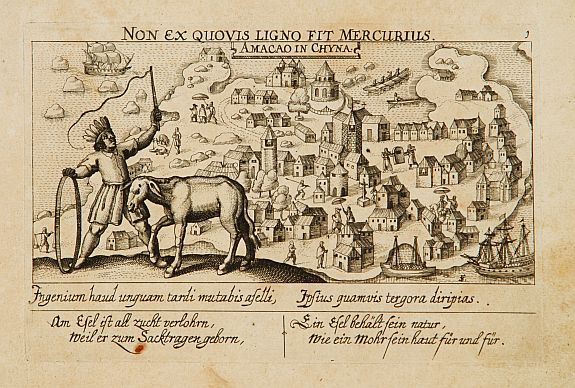 NON EX QUOVIS LIGNO FIT MERCURIUS.
1
AMACAO IN CHYNA.
Ingenium haud unquam tardi mutabis aselli,
Ipsius quamvis tergora diripias.
Am Esel ist all zucht verlohrn,
Weil er zum Sacktragen geborn,
Ein Esel behält sein natur,
Wie ein Mohr sein haut für und für.